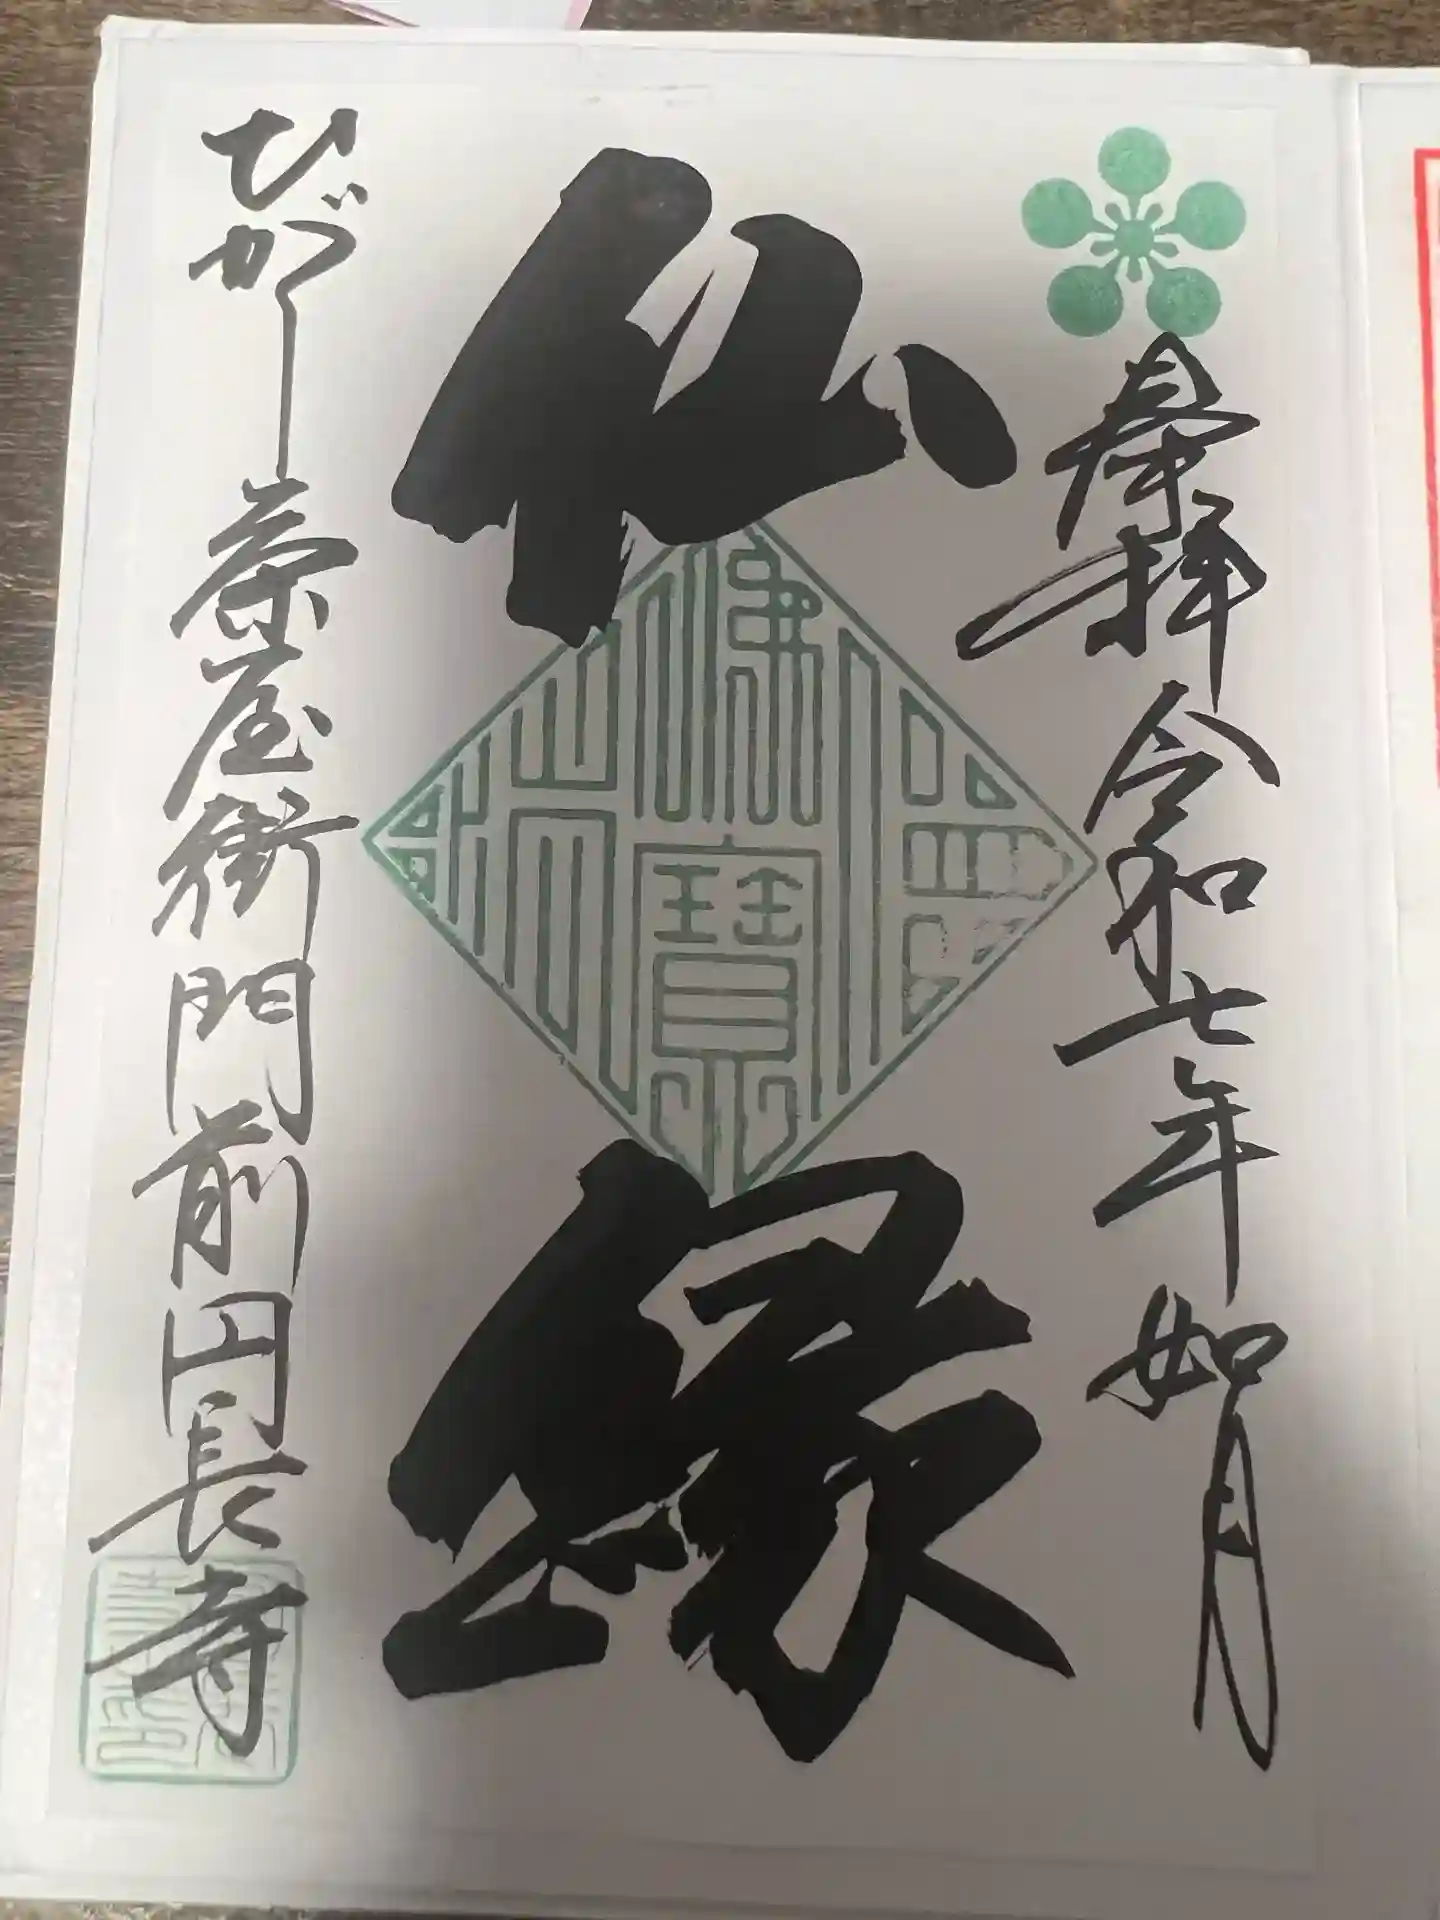 奉拝 令和七年如月
仏縁
佛法僧寶
ひがし茶屋街門前円長寺